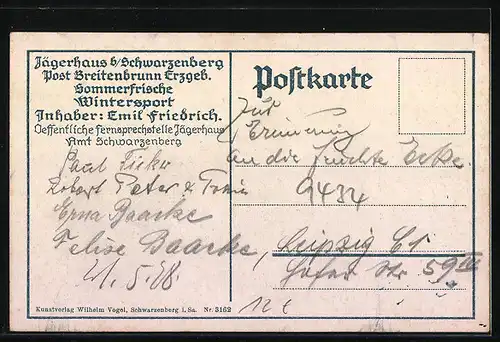 Jägerhaus b/Schwarzenberg
Post Breitenbrunn Erzgeb.
Sommerfrische
Wintersport
Inhaber: Emil Friedrich.
Oeffentliche Fernsprechstelle Jägerhaus
Amt Schwarzenberg
Paul
Robert Peter &
Erna Baacke
Felise Baacke,
21.5.28.
Kunstverlag Wilhelm Vogel, Schwarzenberg i. Sa. Nr. 3162
Postkarte
Zur
Erinnerung
An die feuchte Ecke.
9434
Leipzig C1
Str. 59 III
12 €